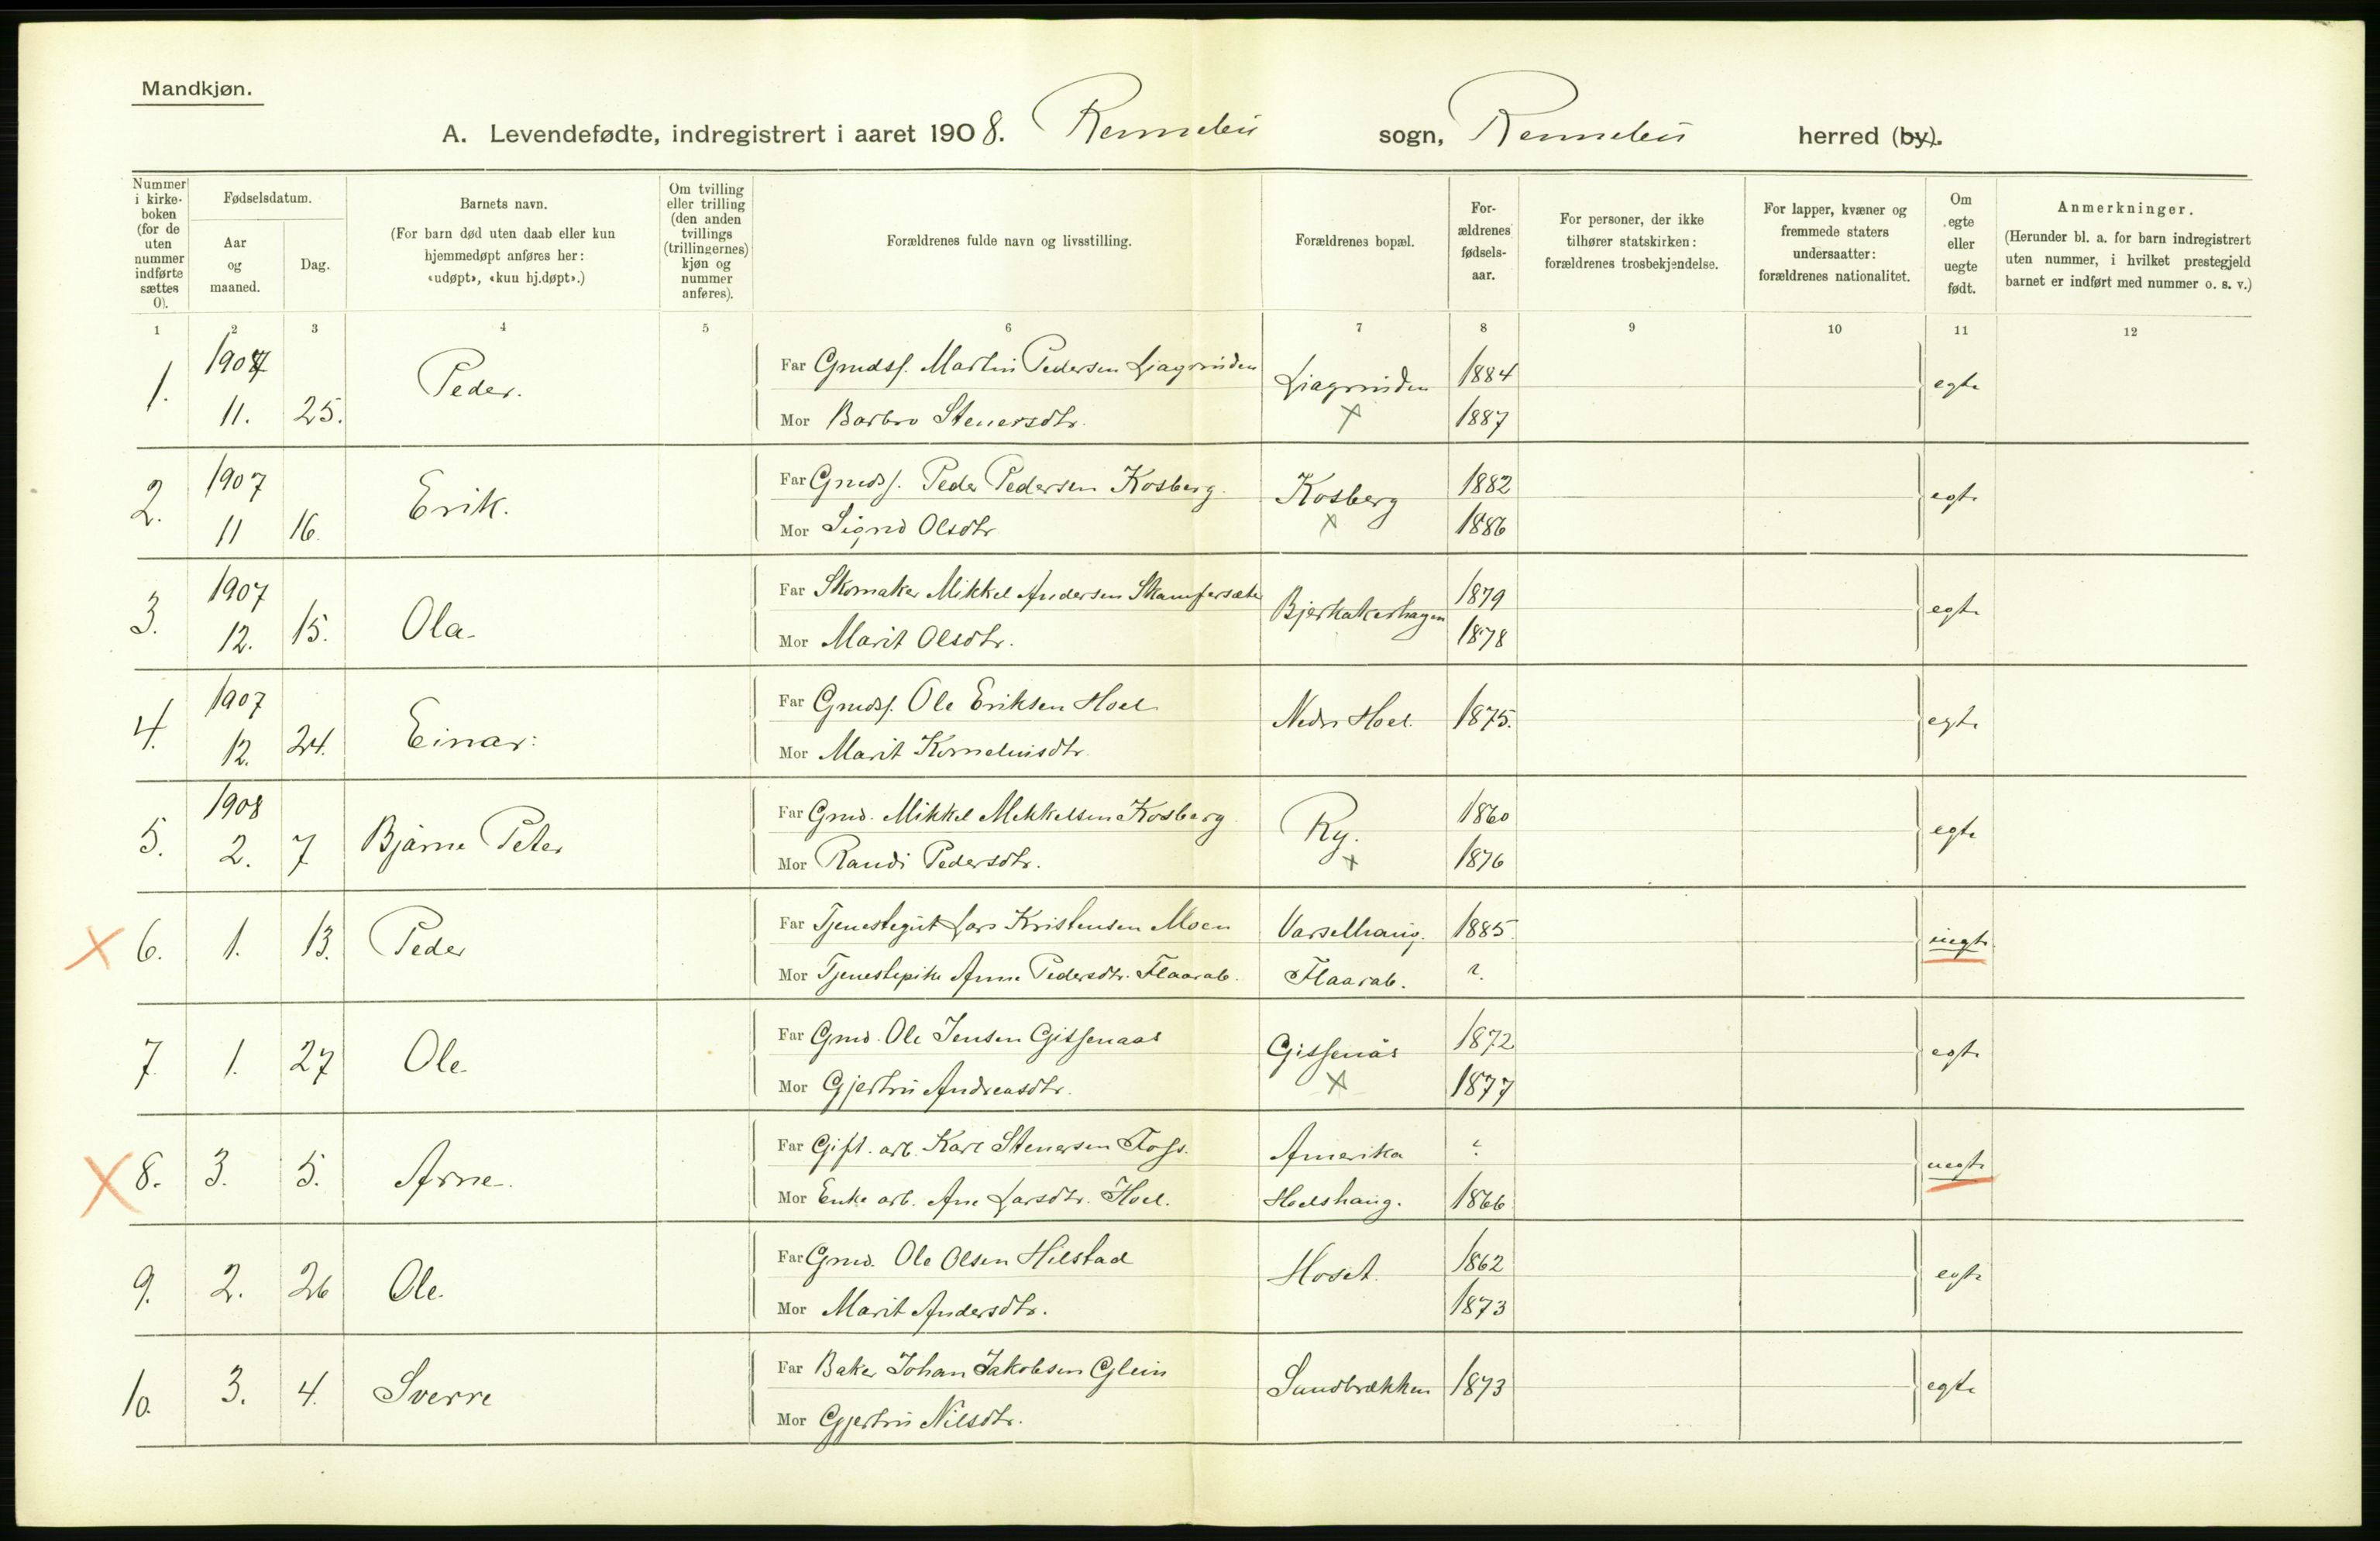 Mandkjøn.
A. Levendefødte, indregistrert i aaret 1908. Rennebu sogn, Rennebu herred (by).
Nummer i kirke-boken (for de uten nummer indførte sættes 0).
Fødselsdatum.
Aar og maaned.
Dag.
Barnets navn.
(For barn død uten daab eller kun hjemmedøpt anføres her: «udøpt», «kun hj.døpt».)
Om tvilling eller trilling (den anden tvillings (trillingernes) kjøn og nummer anføres).
Forældrenes fulde navn og livsstilling.
Forældrenes bopæl.
For-ældrenes fødsels-aar.
For personer, der ikke tilhører statskirken: forældrenes trosbekjendelse.
For lapper, kvæner og fremmede staters undersaatter: forældrenes nationalitet.
Om egte eller uegte født.
Anmerkninger.
(Herunder bl. a. for barn indregistrert uten nummer, i hvilket prestegjeld barnet er indført med nummer o. s. v.)
1 2 3 4 5 6 7 8 9 10 11 12
1. 1907 11. 25. Peder. Far Grudsf. Martin Pedersen Liagrinden Liagrinden 1884 egte
Mor Barbro Stenersdtr. x 1887
2. 1907 11 16. Erik. Far Grudsf. Peder Pedersen Kosberg. Kosberg 1882 egte
Mor Sigrid Olsdtr x 1886
3. 1907 12. 15. Ola. Far Skomaker Mikkel Andersen Skamfersæter Bjerkakerhagen 1879 egte
Mor Marit Olsdtr. 1878
4. 1907 12. 24. Einar. Far Grudsf. Ole Eriksen Hoel Nedr. Hoel. 1875. egte
Mor Marit Korneliusdtr.
5. 1908 2. 7 Bjarne Peter Far Grud. Mikkel Mikkelsen Kosberg. Ry. 1860 egte
Mor Randi Pedersdtr. x 1876
x 6. 1. 13. Peder Far Tjenestegut Lars Kristensen Moen Varselhaug. 1885. uegte
Mor Tjenestepike Anne Pedersdtr. Flaarab. Flaarab. ?.
7. 1. 27 Ole Far Grud. Ole Jensen Gissenaas Gissenås 1872 egte
Mor Gjertru Andreasdtr. x 1877
x 8. 3. 5. Arne. Far Gift. arb. Karl Stenersen Foss. Amerika ? uegte
Mor Enke arb. Ane Larsdtr. Hoel. Hoelshaug. 1866
9. 2. 26 Ole. Far Grud. Ole Olsen Hilstad Hoset. 1862 egte
Mor Marit Andersdtr. 1873
10. 3. 4. Sverre Far Baker Johan Jakobsen Glein Sundbrækken 1873 egte
Mor Gjertru Nilsdtr.